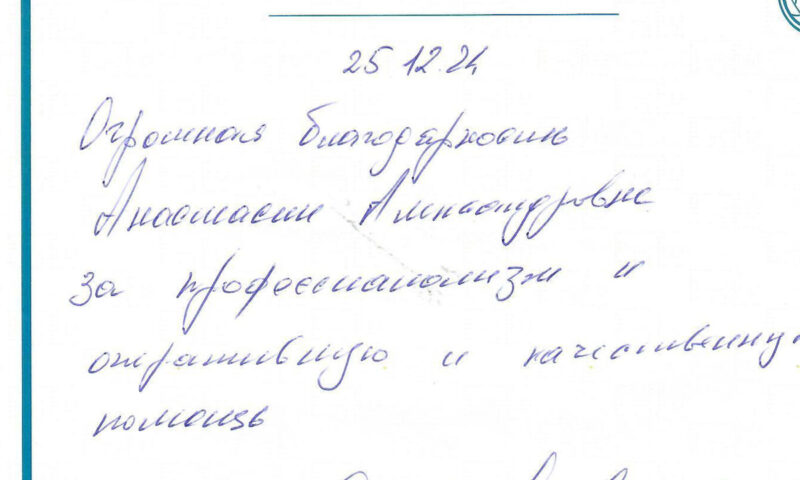 25.12.24
Огромная благодарность
Анастасии Александровне
за профессионализм и
оперативную и качественную
помощь